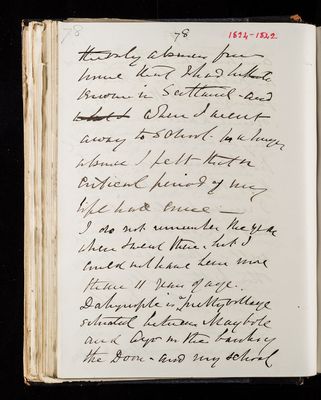 78 78 1824-1842
the only absence from
home that I had hitherto
known in Scotland - and
when I went
away to School for a longer
absence I felt that a
critical period of my
life had come —
I do not remember the year
when I went there, but I
could not have been more
than 11 years of age.
Dalrymple is a pretty village
situated between Maybole
and Ayr on the banks of
the Doon - and my school